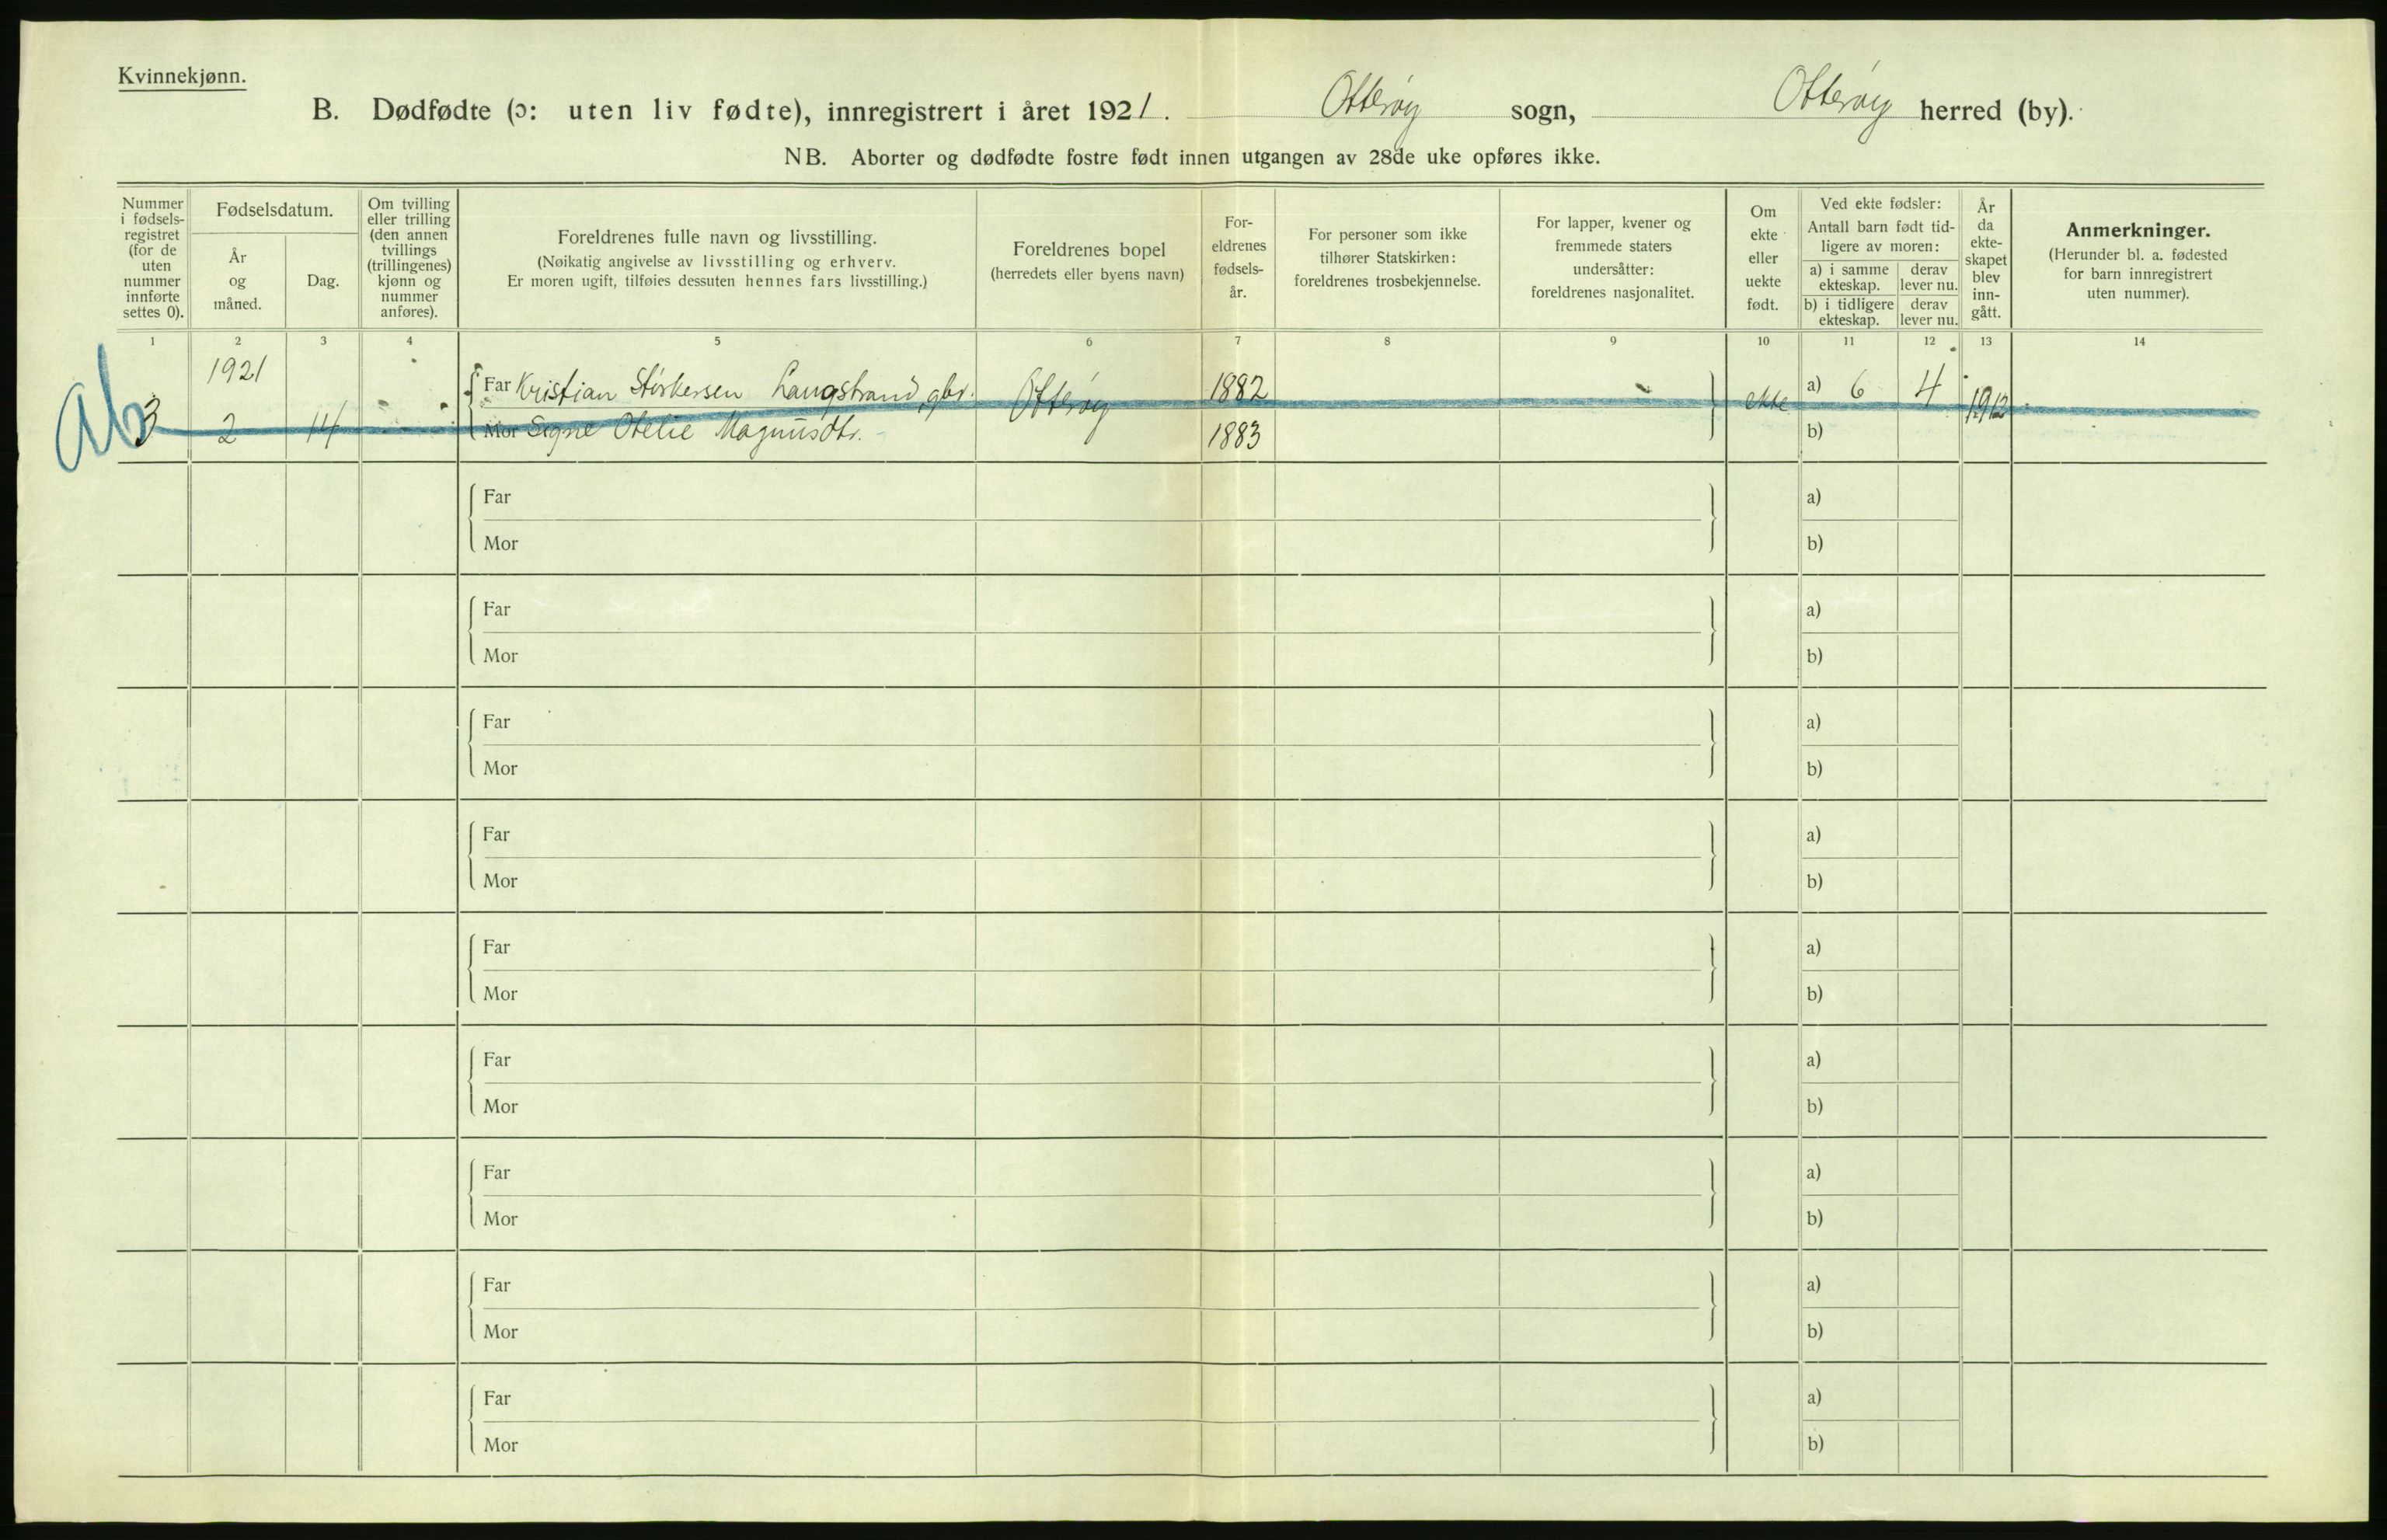 Kvinnekjønn.
B. Dødfødte (ɔ: uten liv fødte), innregistrert i året 1921. Otterøy sogn, Otterøy herred (by).
NB. Aborter og dødfødte fostre født innen utgangen av 28de uke opføres ikke.
Nummer i fødsels- registret (for de uten nummer innførte settes 0).
Fødselsdatum.
År og måned.
Dag.
Om tvilling eller trilling (den annen tvillings (trillingenes) kjønn og nummer anføres).
Foreldrenes fulle navn og livsstilling.
(Nøikatig angivelse av livsstilling og erhverv.
Er moren ugift, tilføies dessuten hennes fars livsstilling.)
Foreldrenes bopel
(herredets eller byens navn)
For- eldrenes fødsels- år.
For personer som ikke tilhører Statskirken: foreldrenes trosbekjennelse.
For lapper, kvener og fremmede staters undersåtter: foreldrenes nasjonalitet.
Om ekte eller uekte født.
Ved ekte fødsler:
Antall barn født tid- ligere av moren:
a) i samme ekteskap.
derav lever nu.
b) i tidligere ekteskap.
derav lever nu.
År da ekte- skapet blev inn- gått.
Anmerkninger.
(Herunder bl. a. fødested for barn innregistrert uten nummer).
1 2 3 4 5 6 7 8 9 10 11 12 13 14
1921
Far Kristian Størkersen Langstrand gbr. Otterøy 1882 ekte a) 6 4 1912
Ab 3 2 14 Mor Signe Otelie Magnusdtr. 1883 b)
Far a)
Mor b)
Far a)
Mor b)
Far a)
Mor b)
Far a)
Mor b)
Far a)
Mor b)
Far a)
Mor b)
Far a)
Mor b)
Far a)
Mor b)
Far a)
Mor b)